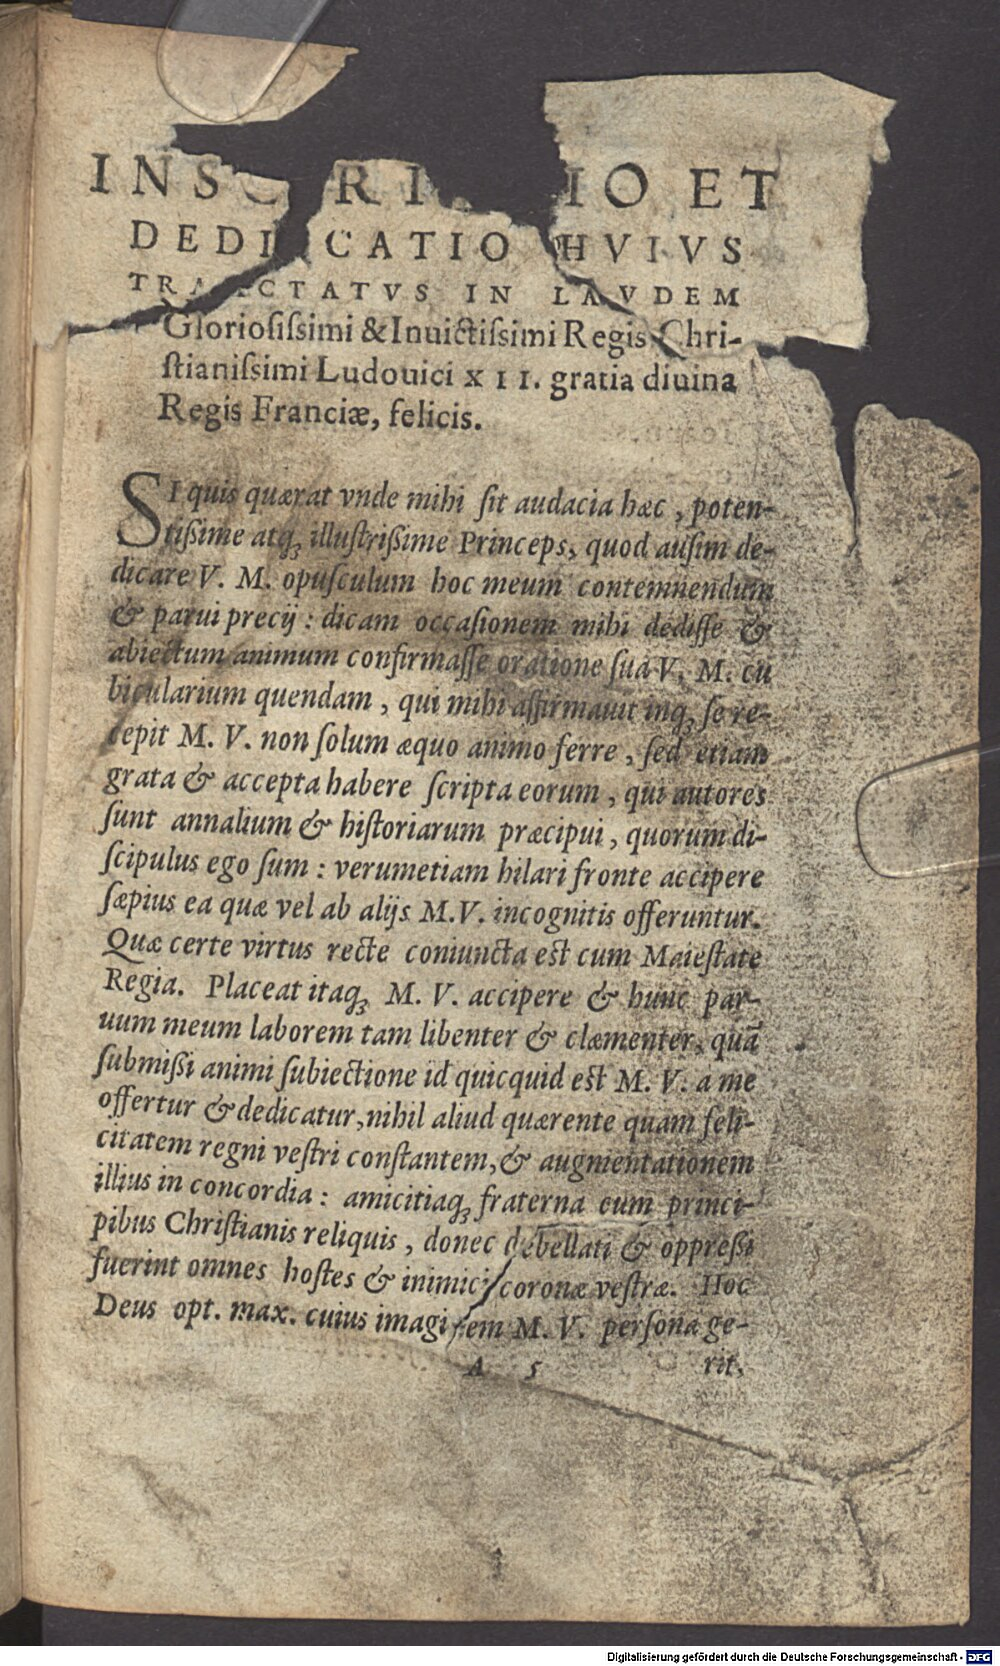 INSCRI IO ET
DEDICATIO HVIVS
TRACTATVS IN LAVDEM
Gloriosiſsimi & Inuictiſsimi Regis Chri-
ſtianiſsimi Ludouici XII. gratia diuina
Regis Franciæ, felicis.
SI quis quærat vnde mihi ſit audacia hæc, poten-
tißime atq; illuſtrißime Princeps, quod auſim de-
dicare V. M. opuſculum hoc meum contemnendum
& parui precij: dicam occaſionem mihi dediſſe &
abiectum animum confirmaſſe oratione ſua V. M. cu
bicularium quendam, qui mihi affirmauit inq; ſe re-
cepit M. V. non ſolum æquo animo ferre, ſed etiam
grata & accepta habere ſcripta eorum, qui autores
ſunt annalium & hiſtoriarum præcipui, quorum di-
ſcipulus ego ſum: verumetiam hilari fronte accipere
ſæpius ea quæ vel ab alijs M.V. incognitis offeruntur.
Quæ certe virtus recte coniuncta eſt cum Maieſtate
Regia. Placeat itaq; M. V. accipere & hunc par-
uum meum laborem tam libenter & clæmenter, quā
ſubmißi animi ſubiectione id quicquid eſt M. V. a me
offertur & dedicatur, nihil aliud quærente quam feli-
citatem regni veſtri conſtantem, & augmentationem
illius in concordia: amicitiaq; fraterna cum princi-
pibus Chriſtianis reliquis, donec debellati & oppreßi
fuerint omnes hoſtes & inimici coronæ veſtræ. Hoc
Deus opt. max. cuius imaginem M. V. perſona ge-
A 5 rit,
Digitalisierung gefördert durch die Deutsche Forschungsgemeinschaft - DFG